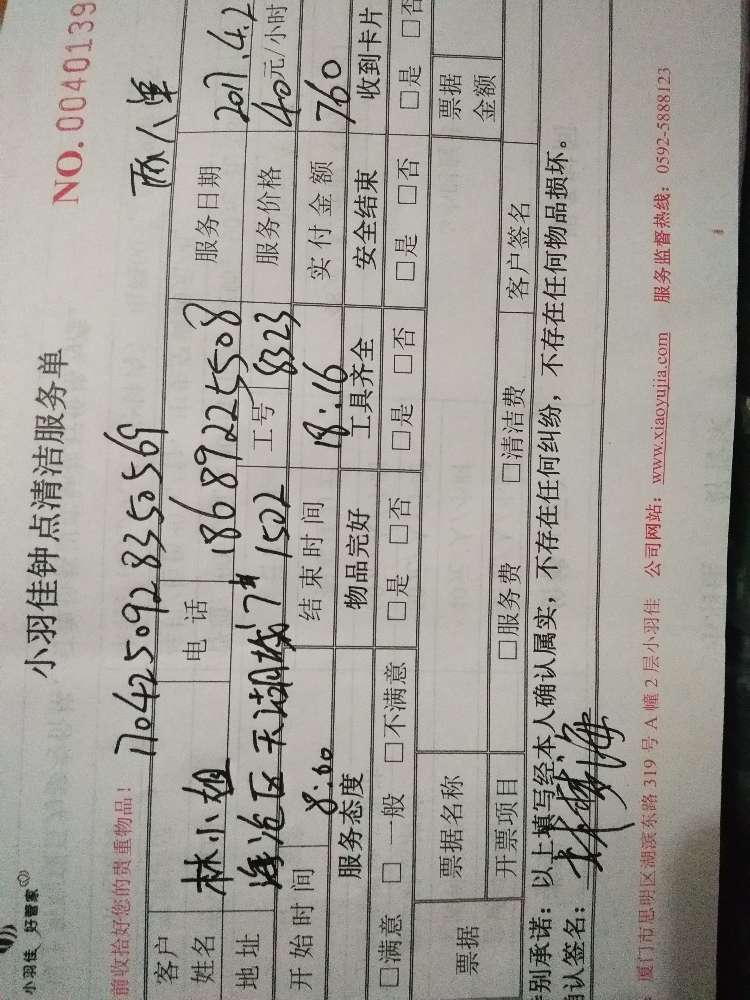 小羽佳 好管家
小羽佳钟点清洁服务单
NO. 0040139
前收拾好您的贵重物品!
17042509283505 69
客户姓名 林小姐 电话 18689225508 服务日期 2017.4.2
地址 海沧区天湖城7# 1502 工号 8323 服务价格 40元/小时
开始时间 8:00 结束时间 18:16 实付金额 760
服务态度 物品完好 工具齐全 安全结束 收到卡片
□满意 □一般 □不满意 □是 □否 □是 □否 □是 □否 □是 □否
票据 票据名称 票据金额
开票项目 □服务费 □清洁费 客户签名
别承诺:以上填写经本人确认属实,不存在任何纠纷,不存在任何物品损坏。
确认签名:
厦门市思明区湖滨东路 319 号 A 幢 2 层小羽佳 公司网站:www.xiaoyujia.com 服务监督热线:0592-5888123